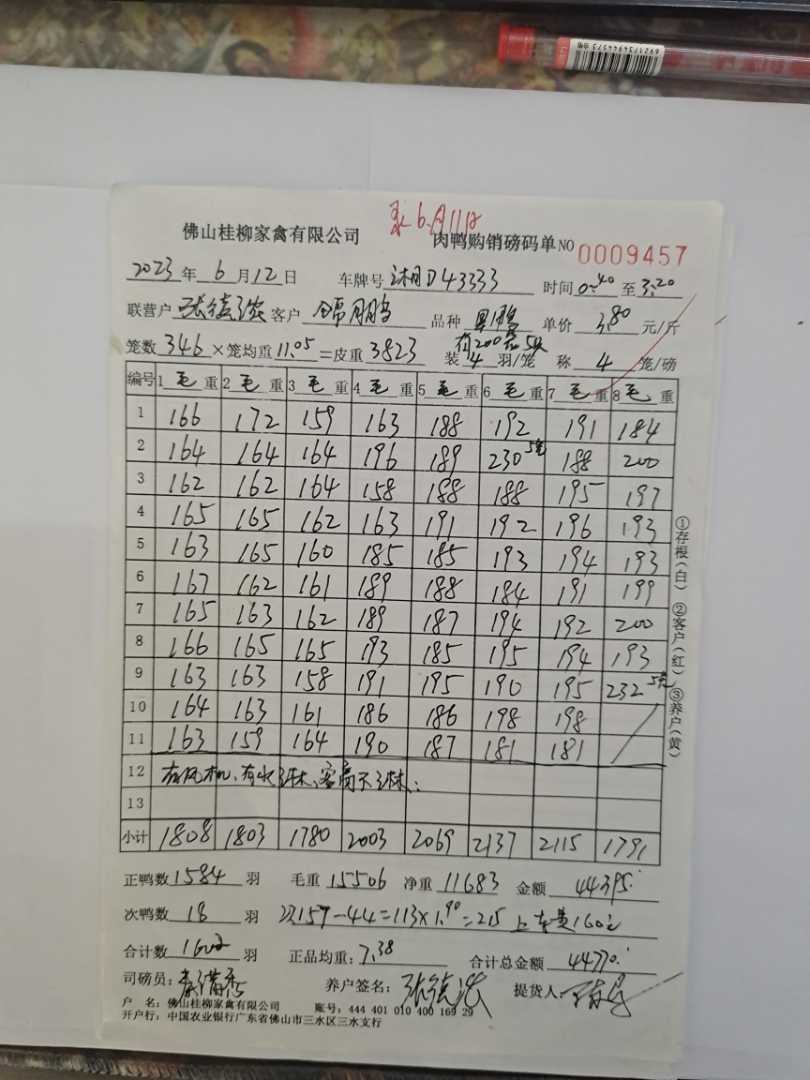 6月11日
佛山桂柳家禽有限公司 肉鸭购销磅码单 NO 0009457
2023年6月12日 车牌号 湘D43333 时间 0:40 至 3:20
联营户 客户 品种 单价 3.80 元/斤
笼数 346 ×笼均重 11.05 =皮重 3823 装 4 羽/笼 称 4 笼/磅
编号 1 毛 重 2 毛 重 3 毛 重 4 毛 重 5 毛 重 6 毛 重 7 毛 重 8 毛 重
1 166 172 159 163 188 192 191 184
2 164 164 164 196 189 230 188 200
3 162 162 164 158 188 188 195 197
4 165 165 162 163 191 192 196 193
5 163 165 160 185 185 193 194 193
6 167 162 161 189 188 184 191 199
7 165 163 162 189 187 194 192 200
8 166 165 165 193 185 195 194 193
9 163 163 158 191 195 190 195 232
10 164 163 161 186 186 198 198
11 163 159 164 190 187 181 181
12 有风机、有水淋、客商不淋;
13
小计 1808 1803 1780 2003 2069 2137 2115 1791
正鸭数 1584 羽 毛重 15506 净重 11683 金额 44395.
次鸭数 18 羽 157-44=113×1.90=215 上车费160元
合计数 1602 羽 正品均重: 7.38 合计总金额 44770.
司磅员: 养户签名: 提货人:
户 名: 佛山桂柳家禽有限公司 账号: 444 401 010 400 169 29
开户行: 中国农业银行广东省佛山市三水区三水支行
①存根(白) ②客户(红) ③养户(黄)
6921734944573